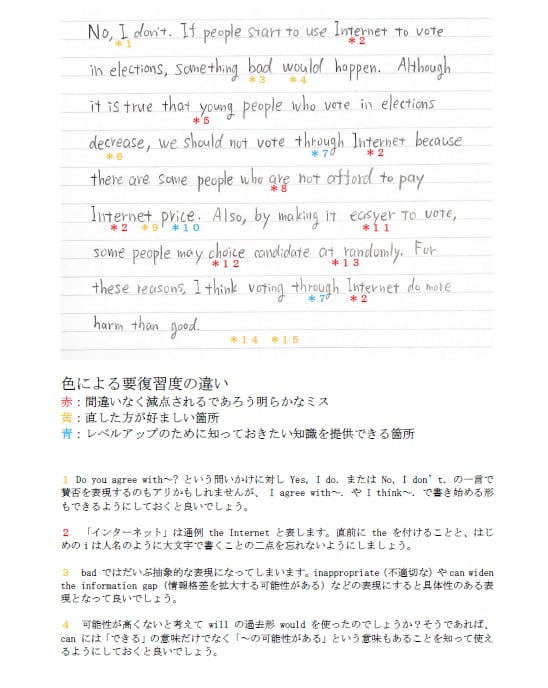 No, I don't. If people start to use Internet to vote
*1 *2
in elections, something bad would happen. Although
*3 *4
it is true that young people who vote in elections
*5
decrease, we should not vote through Internet because
*6 *7 *2
there are some people who are not afford to pay
*8
Internet price. Also, by making it easyer to vote,
*2 *9 *10 *11
some people may choice candidate at randomly. For
*12 *13
these reasons, I think voting through Internet do more
*7 *2
harm than good.
*14 *15
色による要復習度の違い
赤：間違いなく減点されるであろう明らかなミス
黄：直した方が好ましい箇所
青：レベルアップのために知っておきたい知識を提供できる箇所
1 Do you agree with～? という問いかけに対し Yes, I do. または No, I don't. の一言で
賛否を表現するのもアリかもしれませんが、 I agree with～. や I think～. で書き始める形
もできるようにしておくと良いでしょう。
2 「インターネット」は通例 the Internet と表します。直前に the を付けることと、はじ
めの i は人名のように大文字で書くことの二点を忘れないようにしましょう。
3 bad ではだいぶ抽象的な表現になってしまいます。inappropriate（不適切な）や can widen
the information gap（情報格差を拡大する可能性がある）などの表現にすると具体性のある表
現となって良いでしょう。
4 可能性が高くないと考えて will の過去形 would を使ったのでしょうか？そうであれば、
can には「できる」の意味だけでなく「～の可能性がある」という意味もあることを知って使え
るようにしておくと良いでしょう。